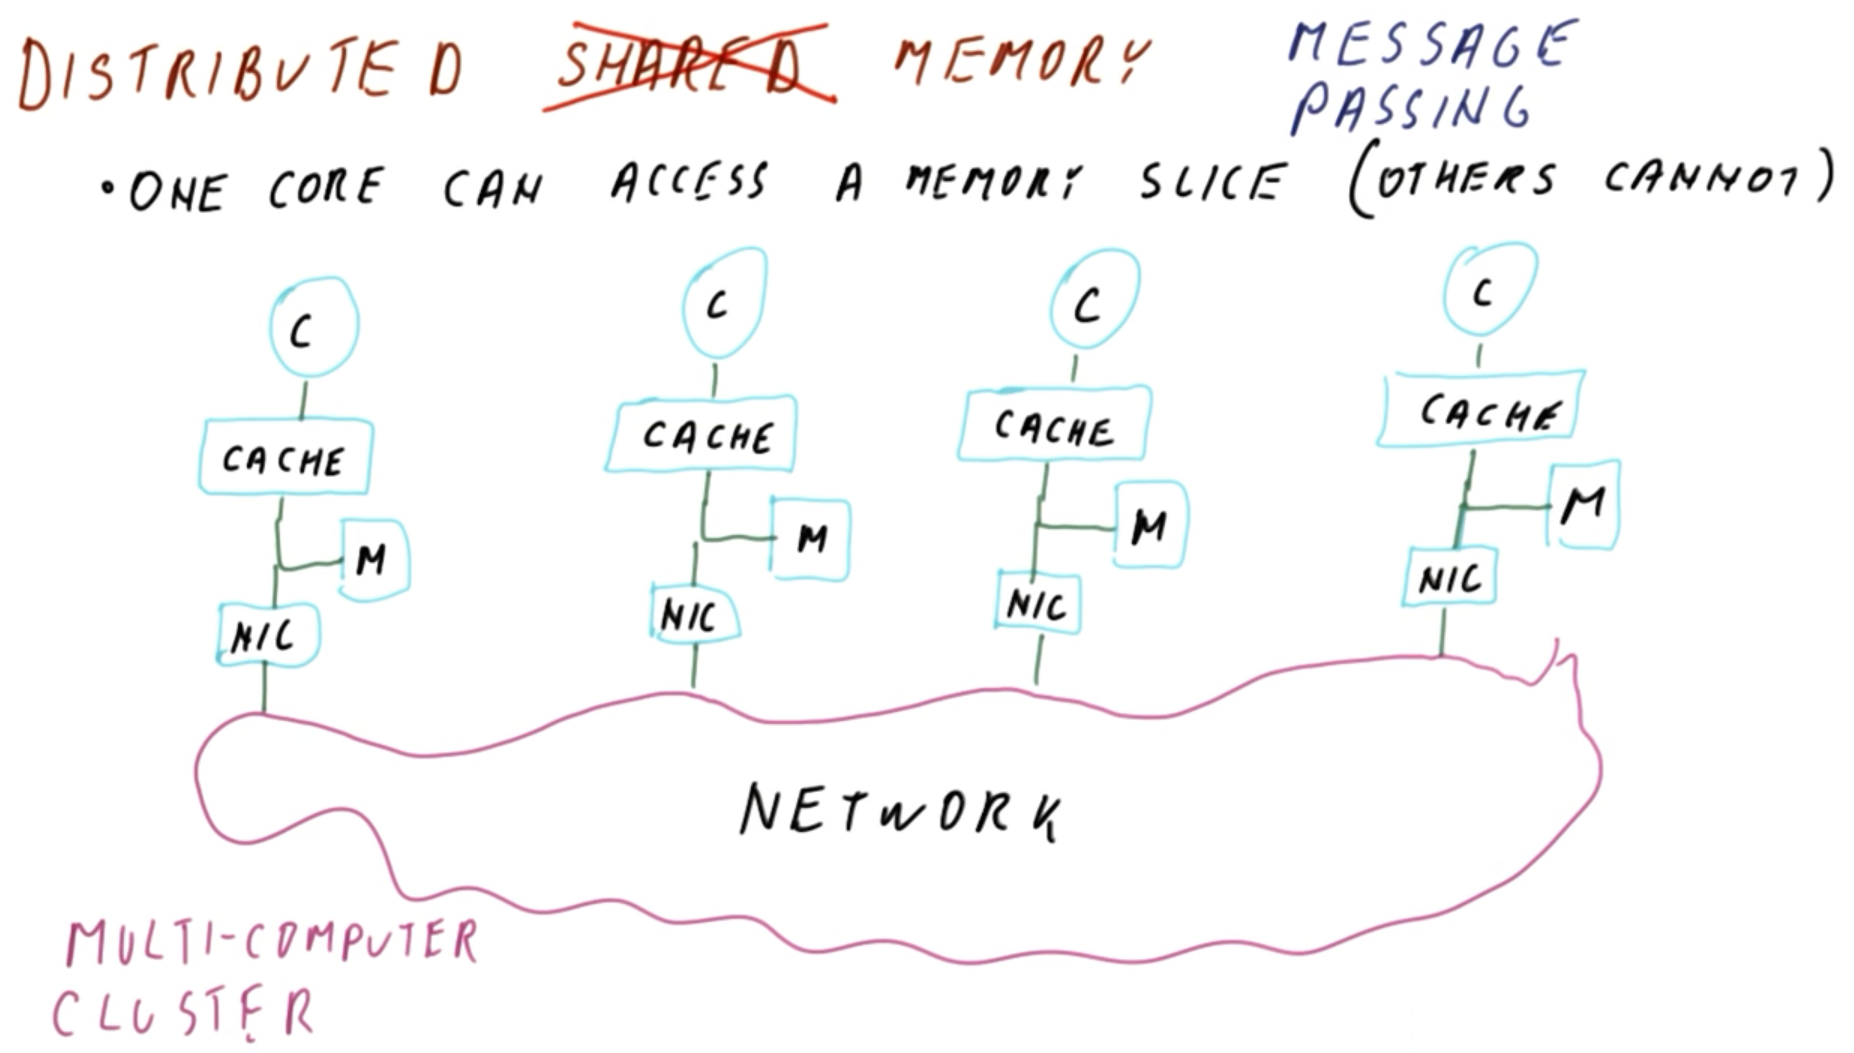 DISTRIBUTED SHARED MEMORY
MESSAGE
PASSING
• ONE CORE CAN ACCESS A MEMORY SLICE (OTHERS CANNOT)
C
C
C
C
CACHE
CACHE
CACHE
CACHE
M
M
M
M
NIC
NIC
NIC
NIC
NETWORK
MULTI-COMPUTER
CLUSTER